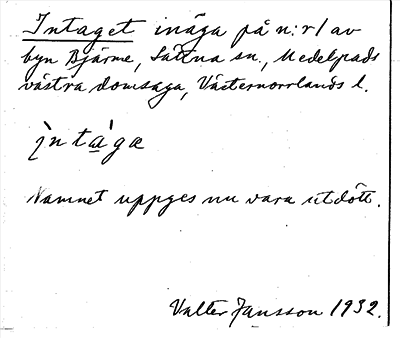 Intaget inäga på n:r 1 av
byn Bjärme, Sättna sn., Medelpads
västra domsaga, Västernorrlands l.
ìntàgæ
Namnet uppges nu vara utdött.
Valter Jansson 1932.